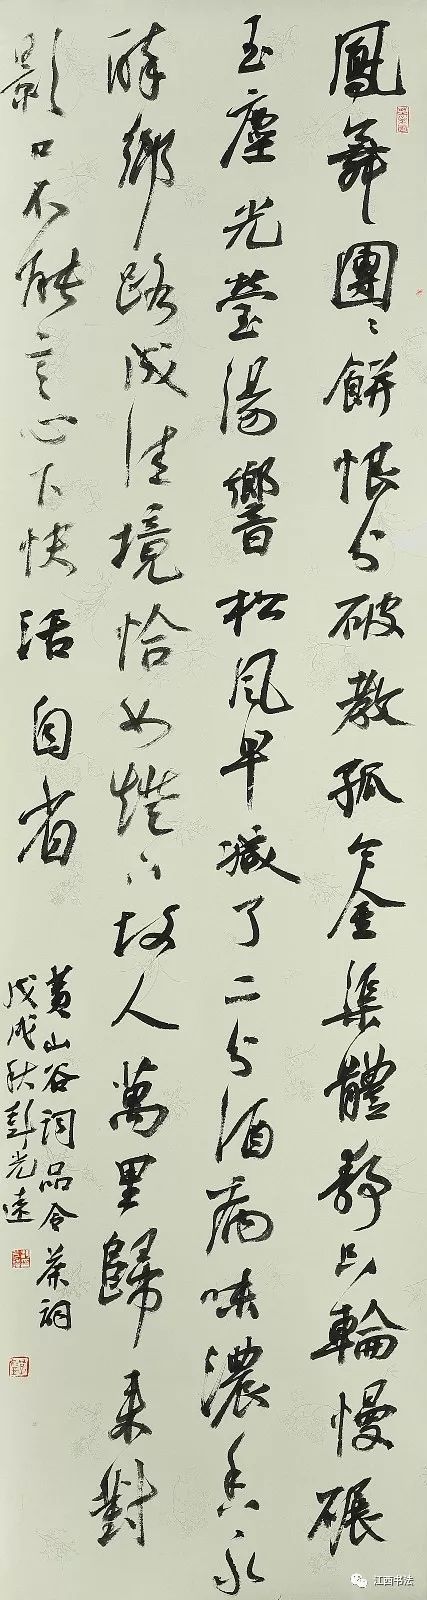 鳳舞團〻餅恨分破教孤令金渠體静只輪慢碾
玉塵光瑩湯響松風早減了二分酒病味濃香永
醉鄉路成佳境恰如燈下故人萬里歸來對
影口不能言心下快活自省
黄山谷词品令茶詞
戊戌秋彭光遠
江西书法